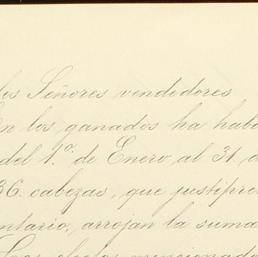 los Señores vendedores
En los ganados ha habi
del 1º de Enero al 31. d
36. cabezas, que justipre
ntario, arrojan la suma